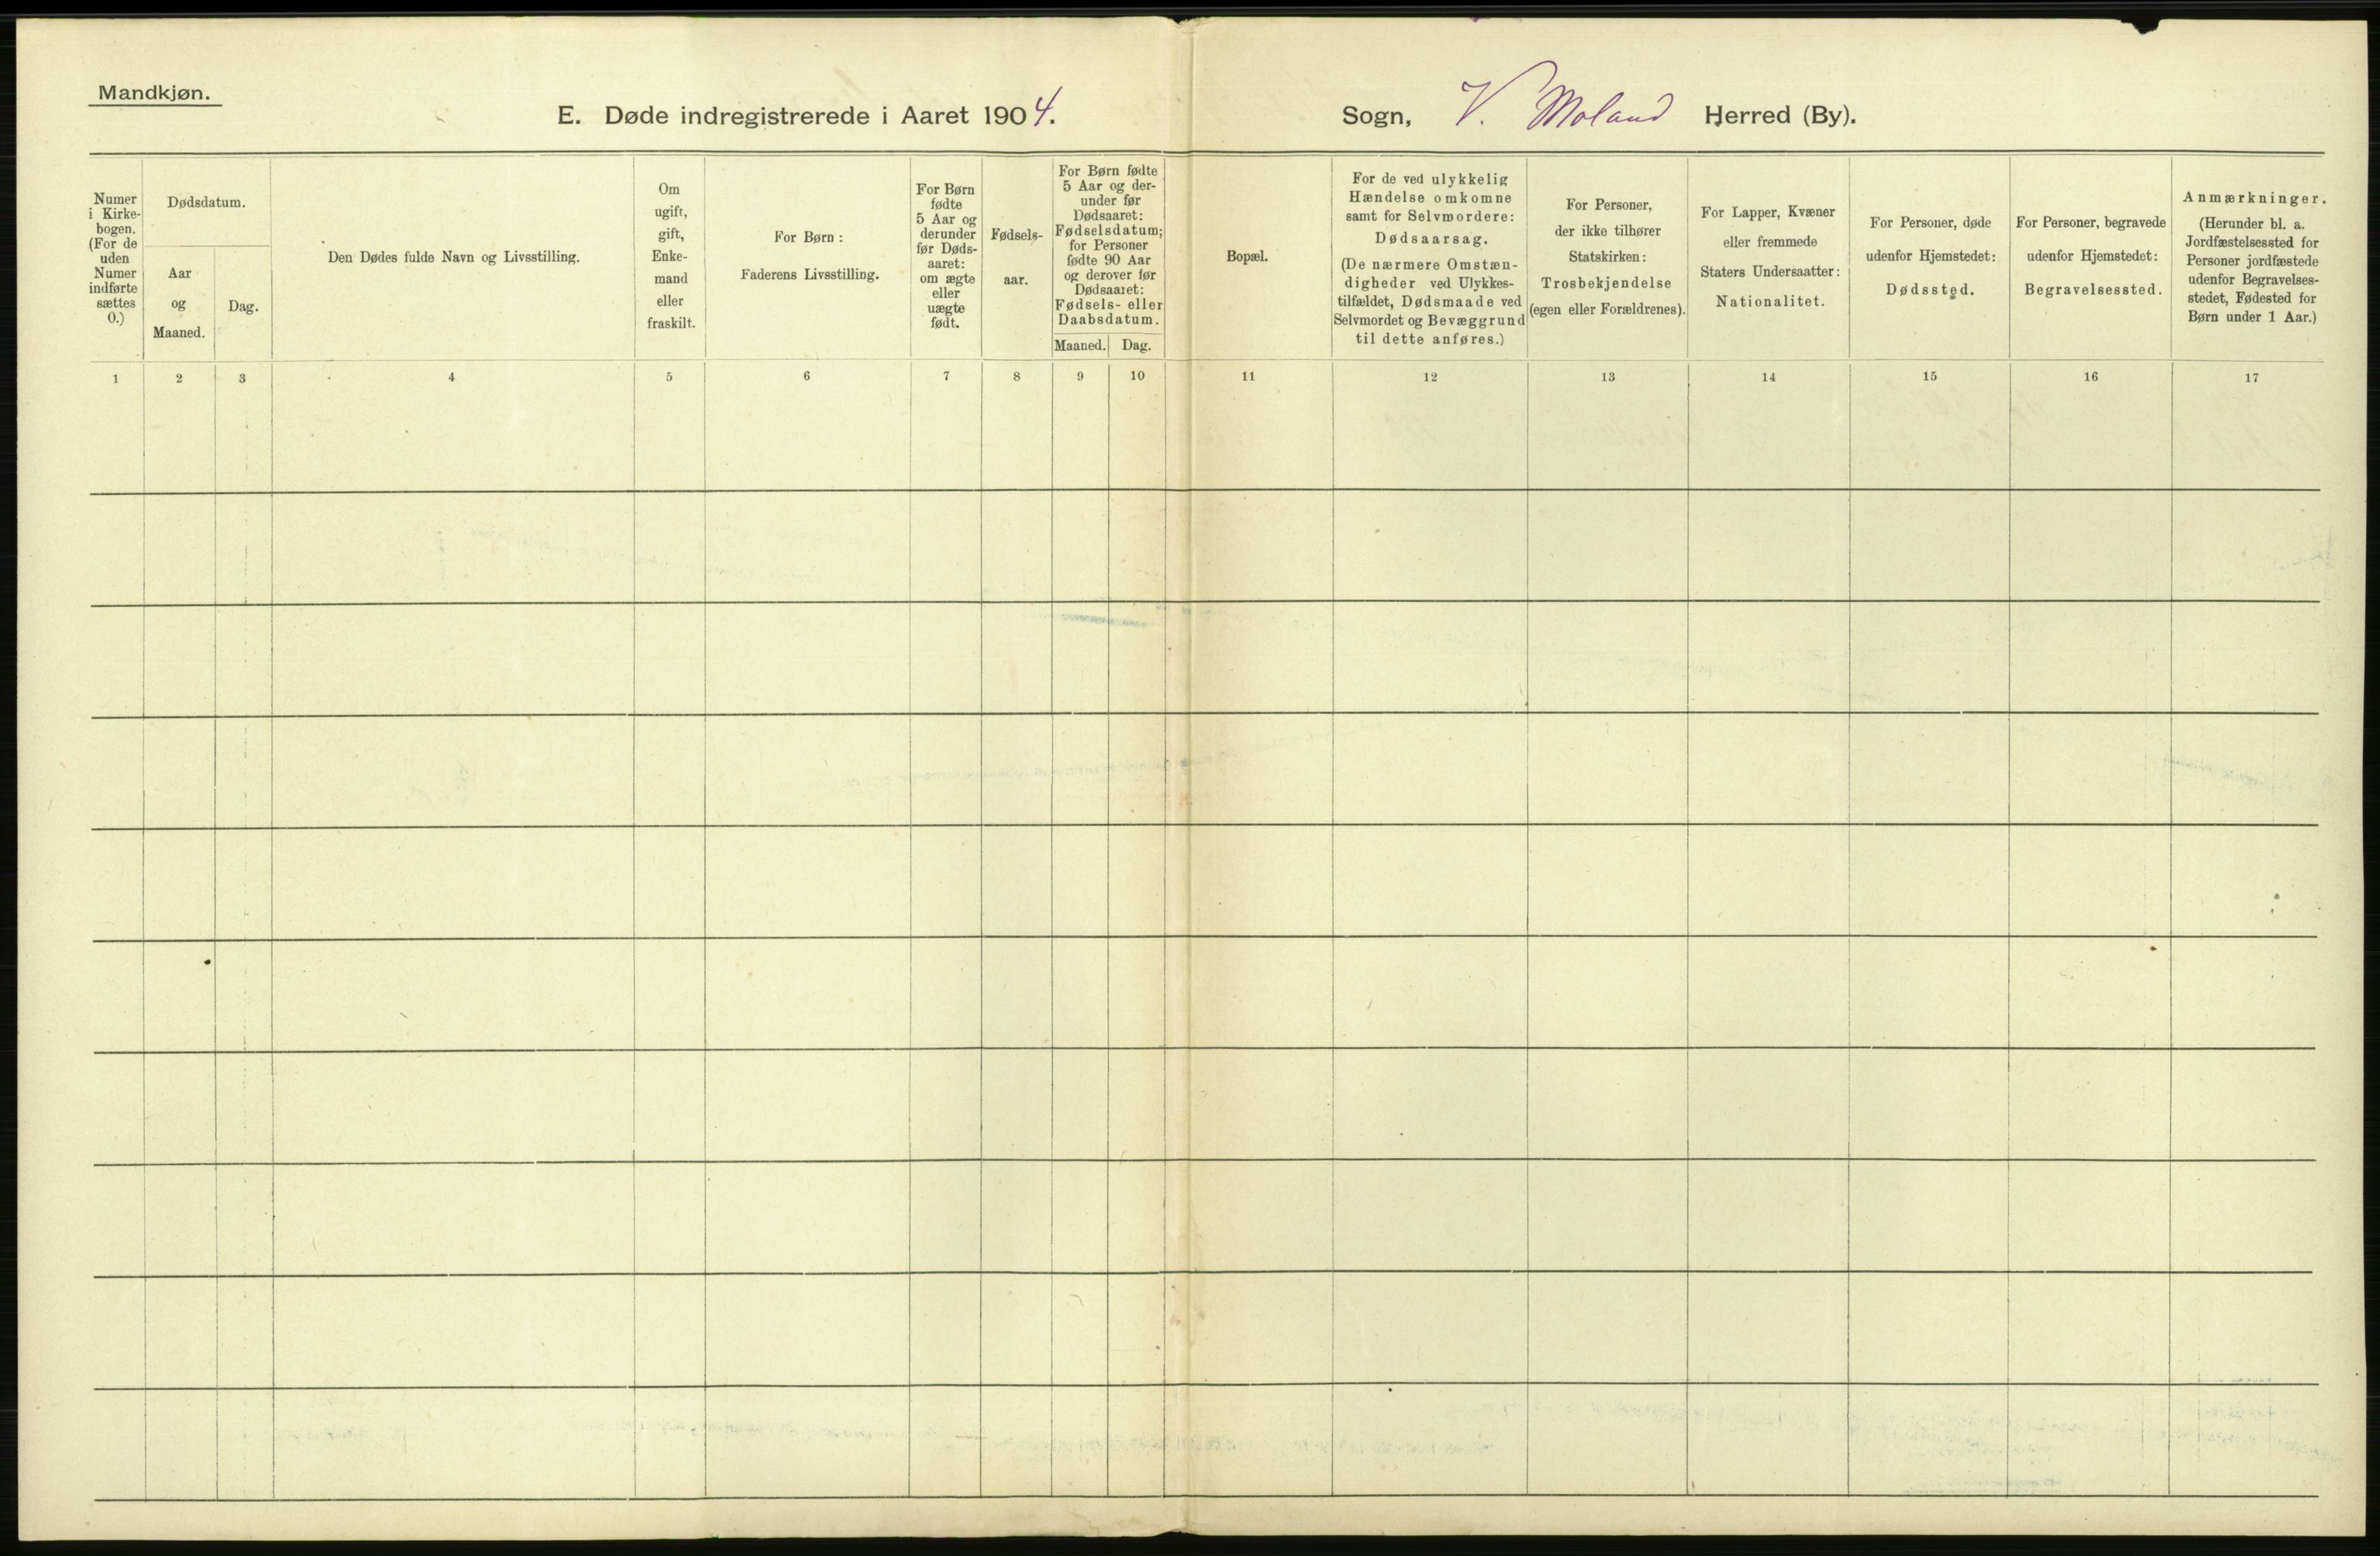 Mandkjøn.
E. Døde indregistrerede i Aaret 1904.
Sogn, V. Moland Herred (By).
Numer
i Kirke-
bogen.
(For de
uden
Numer
indførte
sættes
0.)
Dødsdatum.
Aar
og
Maaned.
Dag.
Den Dødes fulde Navn og Livsstilling.
Om
ugift,
gift,
Enke-
mand
eller
fraskilt.
For Børn:
Faderens Livsstilling.
For Børn
fødte
5 Aar og
derunder
før Døds-
aaret:
om ægte
eller
uægte
født.
Fødsels-
aar.
For Børn fødte
5 Aar og der-
under før
Dødsaaret:
Fødselsdatum;
for Personer
fødte 90 Aar
og derover før
Dødsaaret:
Fødsels- eller
Daabsdatum.
Maaned.
Dag.
Bopæl.
For de ved ulykkelig
Hændelse omkomne
samt for Selvmordere:
Dødsaarsag.
(De nærmere Omstæn-
digheder ved Ulykkes-
tilfældet, Dødsmaade ved
Selvmordet og Bevæggrund
til dette anføres.)
For Personer,
der ikke tilhører
Statskirken:
Trosbekjendelse
(egen eller Forældrenes).
For Lapper, Kvæner
eller fremmede
Staters Undersaatter:
Nationalitet.
For Personer, døde
udenfor Hjemstedet:
Dødssted.
For Personer, begravede
udenfor Hjemstedet:
Begravelsessted.
Anmærkninger.
(Herunder bl. a.
Jordfæstelsessted for
Personer jordfæstede
udenfor Begravelses-
stedet, Fødested for
Børn under 1 Aar.)
1 2 3 4 5 6 7 8 9 10 11 12 13 14 15 16 17